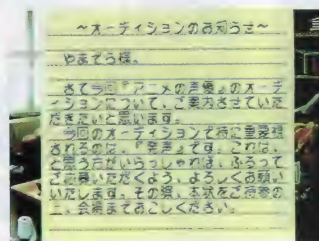 ～オーディションのお知らせ～
やまてう様。
さて今回『アニメの声優』のオーデ
ィションについて、ご案内させていた
だきたいと思います。
今回のオーディションで特に重要視
されるのは、『発声』です。これは、
と思う方がいらっしゃれば、ふるって
ご応募いただくよう、よろしくお願い
いたします。その際、本状をご持参の
上、会場までおこしください。